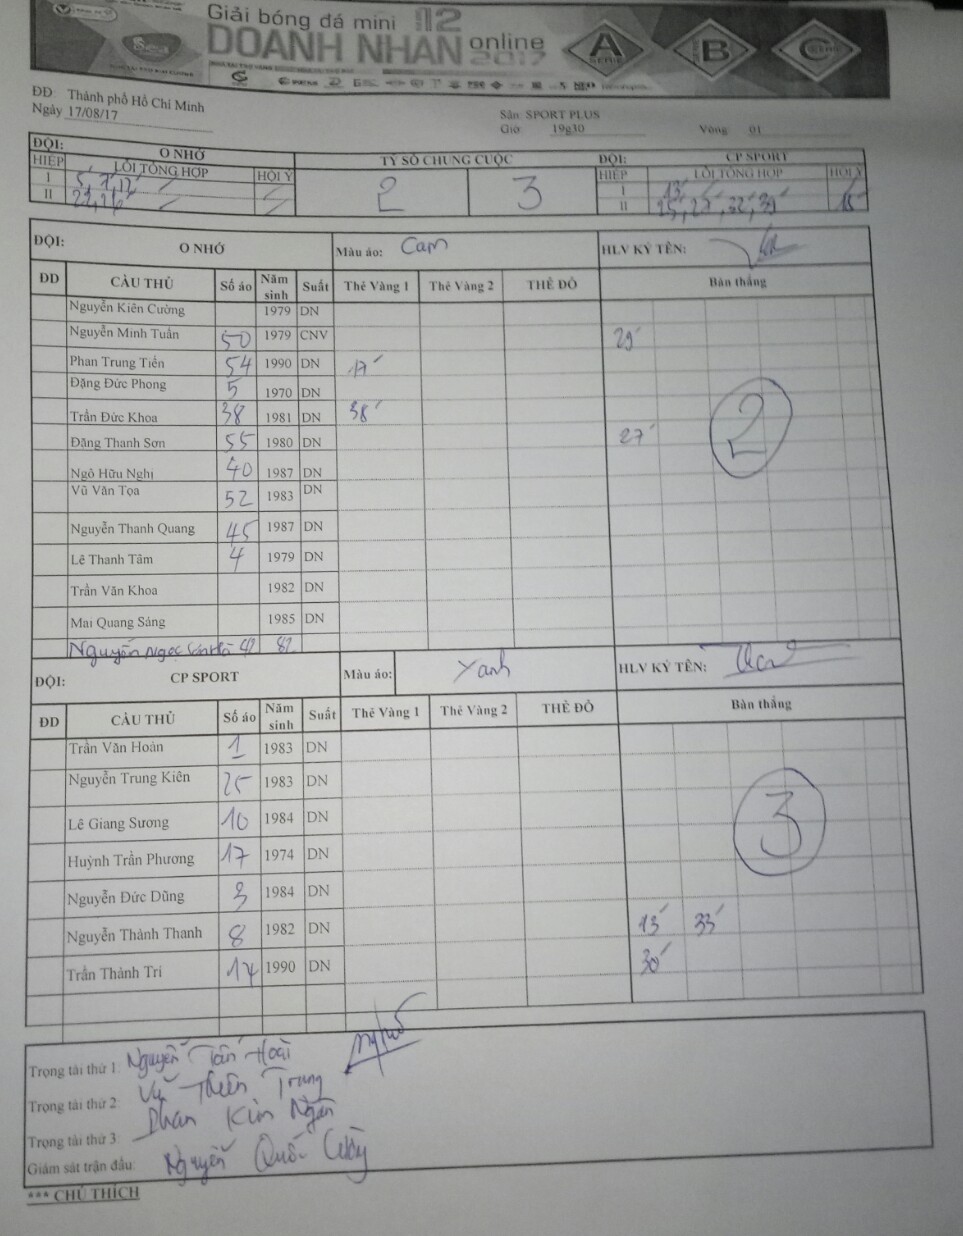 Giải bóng đá mini 12
DOANH NHÂN online 2017
A B C
ĐĐ: Thành phố Hồ Chí Minh
Ngày 17/08/17
Sân: SPORT PLUS
Giờ 19g30 Vòng 01
ĐỘI: O NHỚ TỶ SỐ CHUNG CUỘC ĐỘI: CP SPORT
HIỆP LỖI TỔNG HỢP HỘI Ý 2 3 HIỆP LỖI TỔNG HỢP HỘI Ý
I I 13'
II II
ĐỘI: O NHỚ Màu áo: Cam HLV KÝ TÊN:
ĐD CẦU THỦ Số áo Năm sinh Suất Thẻ Vàng 1 Thẻ Vàng 2 THẺ ĐỎ Bàn thắng
Nguyễn Kiên Cường 1979 DN
Nguyễn Minh Tuấn 50 1979 CNV 29'
Phan Trung Tiến 54 1990 DN 17'
Đặng Đức Phong 5 1970 DN
Trần Đức Khoa 38 1981 DN 38'
Đặng Thanh Sơn 55 1980 DN 27'
2
Ngô Hữu Nghị 40 1987 DN
Vũ Văn Tọa 52 1983 DN
Nguyễn Thanh Quang 45 1987 DN
Lê Thanh Tâm 4 1979 DN
Trần Văn Khoa 1982 DN
Mai Quang Sáng 1985 DN
Nguyễn Ngọc
ĐỘI: CP SPORT Màu áo: Xanh HLV KÝ TÊN:
ĐD CẦU THỦ Số áo Năm sinh Suất Thẻ Vàng 1 Thẻ Vàng 2 THẺ ĐỎ Bàn thắng
Trần Văn Hoàn 1 1983 DN
Nguyễn Trung Kiên 25 1983 DN
Lê Giang Sương 10 1984 DN
3
Huỳnh Trần Phương 17 1974 DN
Nguyễn Đức Dũng 3 1984 DN
Nguyễn Thành Thanh 8 1982 DN 13' 33'
Trần Thành Trí 14 1990 DN 30'
Trọng tài thứ 1: Nguyễn Tấn Hoài
Trọng tài thứ 2: Vũ Thiên Trung
Trọng tài thứ 3: Phan Kim Ngân
Giám sát trận đấu: Nguyễn Quốc
*** CHÚ THÍCH